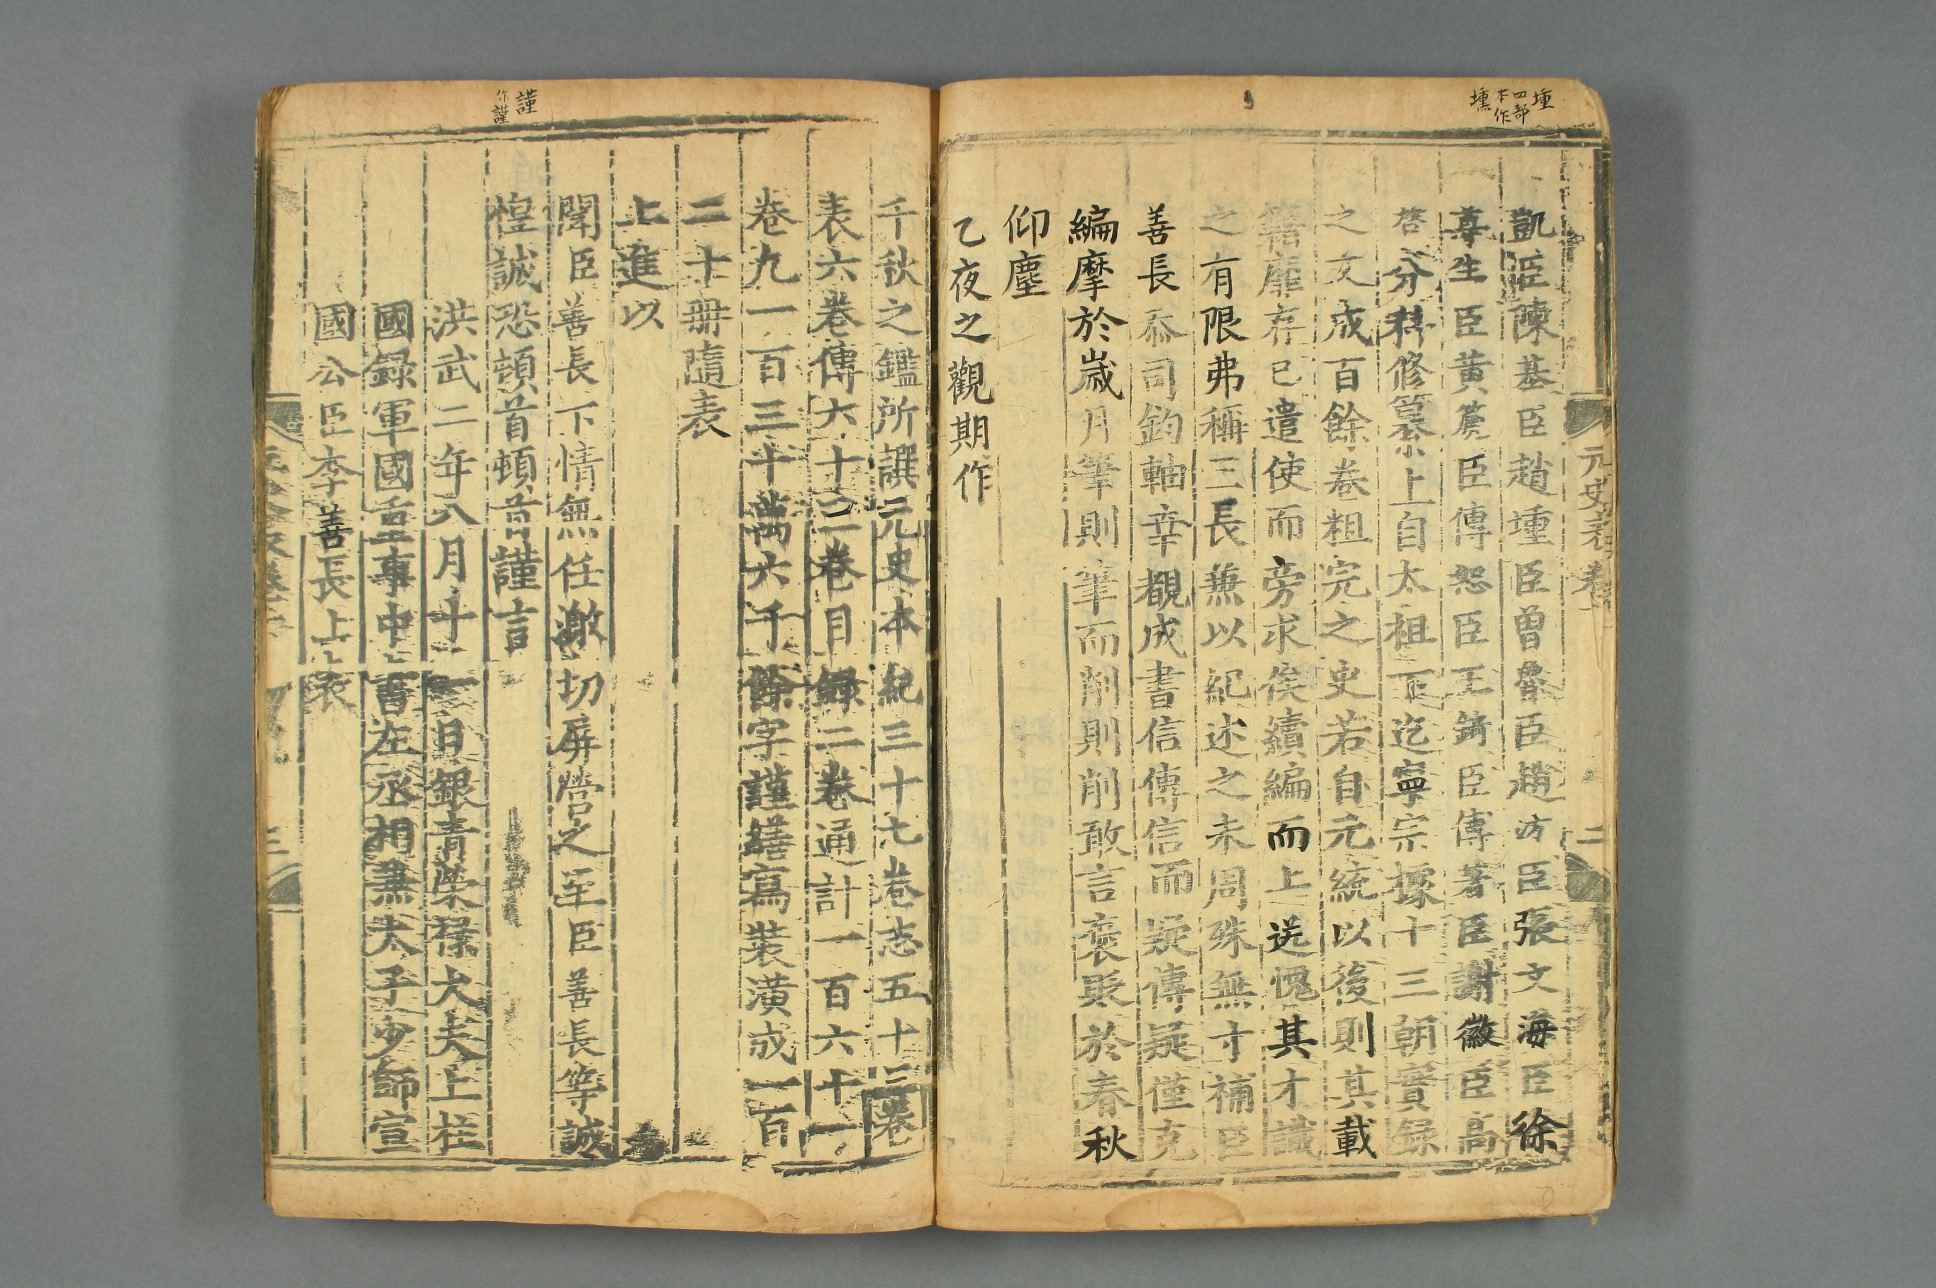 壎 四部本作 壎
凱臣陳基臣趙壎臣曾魯臣趙汸臣張文海臣徐
尊生臣黃篪臣傅恕臣王錡臣傅著臣謝徽臣高
啓分科修纂上自太祖下迄寧宗據十三朝實錄
之文成百餘卷粗完之史若自元統以後則其載
籍靡存已遣使而旁求俟續編而上送愧其才識
之有限弗稱三長兼以紀述之未周殊無寸補臣
善長忝司鈞軸幸覩成書信傳信而疑傳疑僅克
編摩於歲月筆則筆而削則削敢言褒貶於春秋
仰塵
乙夜之觀期作
元史表卷
二
謹 作謹
千秋之鑑所譔元史本紀三十七卷志五十三卷
表六卷傳六十三卷目錄二卷通計一百六十一
卷九一百三十萬六千餘字謹繕寫裝潢成一百
二十冊隨表
上進以
聞臣善長下情無任激切屏營之至臣善長等誠
惶誠恐頓首頓首謹言
洪武二年八月十一日銀青榮祿大夫上柱
國錄軍國重事中書左丞相兼太子少師宣
國公臣李善長上表
三